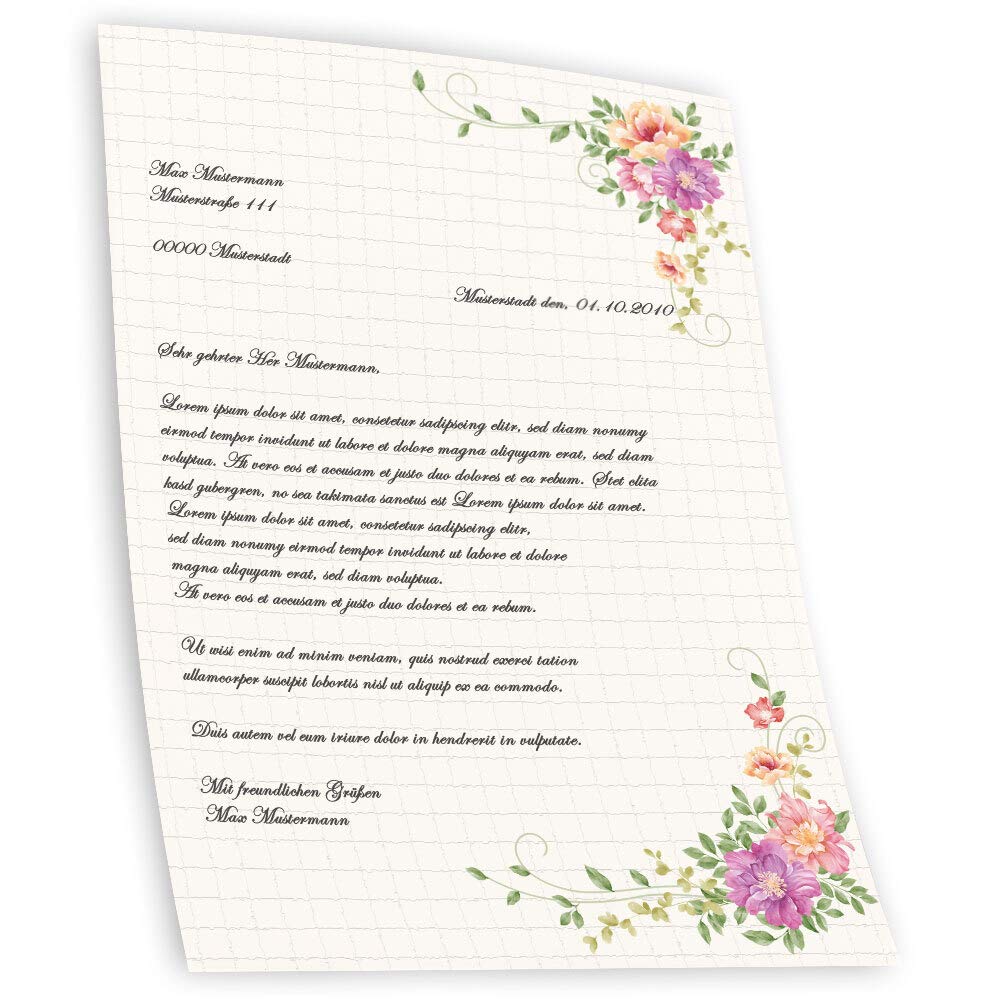 Max Mustermann
Musterstraße 111
00000 Musterstadt
Musterstadt den, 01.10.2010
Sehr gehrter Her Mustermann,
Lorem ipsum dolor sit amet, consetetur sadipscing elitr, sed diam nonumy
eirmod tempor invidunt ut labore et dolore magna aliquyam erat, sed diam
voluptua. At vero eos et accusam et justo duo dolores et ea rebum. Stet clita
kasd gubergren, no sea takimata sanctus est Lorem ipsum dolor sit amet.
Lorem ipsum dolor sit amet, consetetur sadipscing elitr,
sed diam nonumy eirmod tempor invidunt ut labore et dolore
magna aliquyam erat, sed diam voluptua.
At vero eos et accusam et justo duo dolores et ea rebum.
Ut wisi enim ad minim veniam, quis nostrud exerci tation
ullamcorper suscipit lobortis nisl ut aliquip ex ea commodo.
Duis autem vel eum iriure dolor in hendrerit in vulputate.
Mit freundlichen Grüßen
Max Mustermann